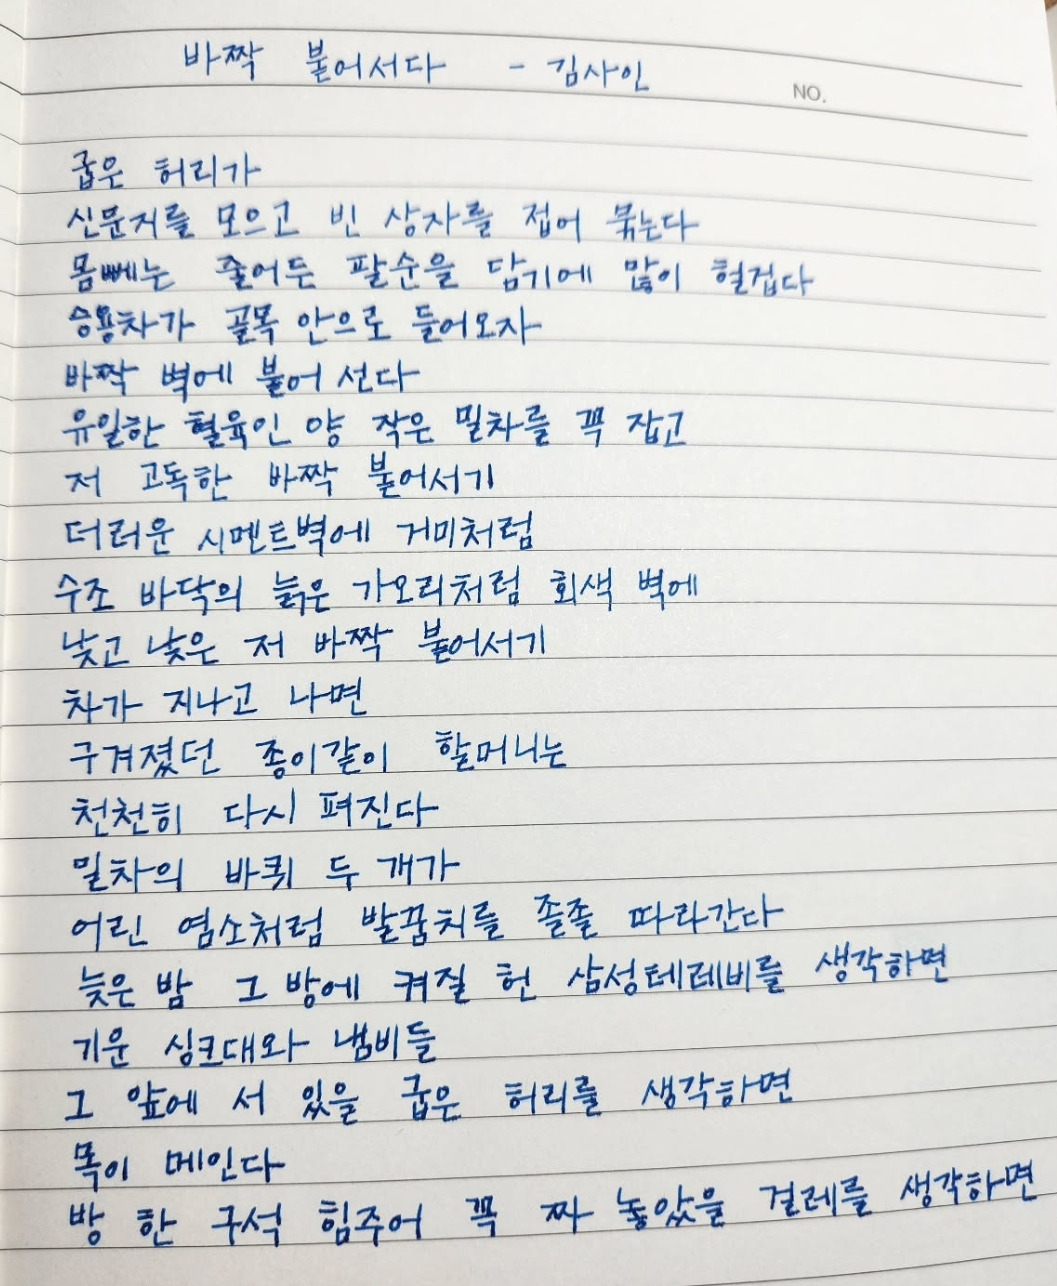 바짝 붙어서다 - 김사인
NO.
굽은 허리가
신문지를 모으고 빈 상자를 접어 묶는다
몸뻬는 졸아든 팔순을 담기에 많이 헐겁다
승용차가 골목 안으로 들어오자
바짝 벽에 붙어 선다
유일한 혈육인 양 작은 밀차를 꼭 잡고
저 고독한 바짝 붙어서기
더러운 시멘트벽에 거미처럼
수조 바닥의 늙은 가오리처럼 회색 벽에
낮고 낮은 저 바짝 붙어서기
차가 지나고 나면
구겨졌던 종이같이 할머니는
천천히 다시 펴진다
밀차의 바퀴 두 개가
어린 염소처럼 발꿈치를 졸졸 따라간다
늦은 밤 그 방에 켜질 헌 삼성테레비를 생각하면
기운 싱크대와 냄비들
그 앞에 서 있을 굽은 허리를 생각하면
목이 메인다
방 한 구석 힘주어 꼭 짜 놓았을 걸레를 생각하면